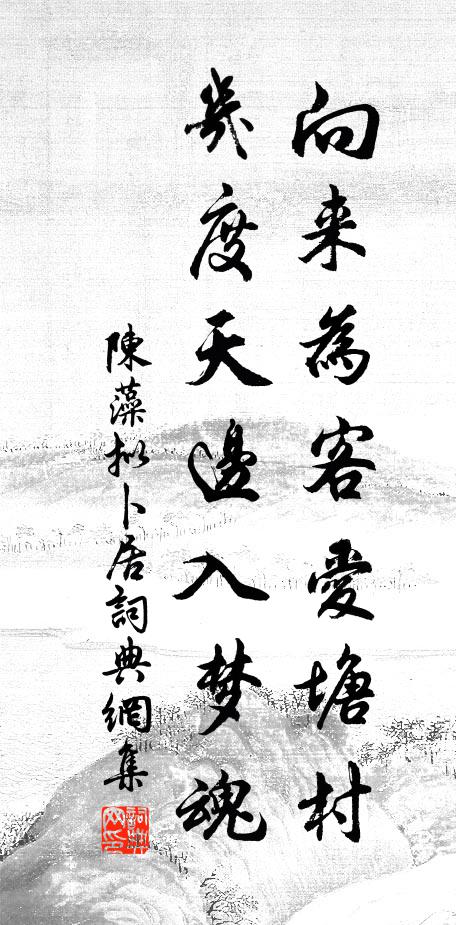 向来為客愛塘村
幾度天邊入梦魂
陳藻擬卜居詞典網集